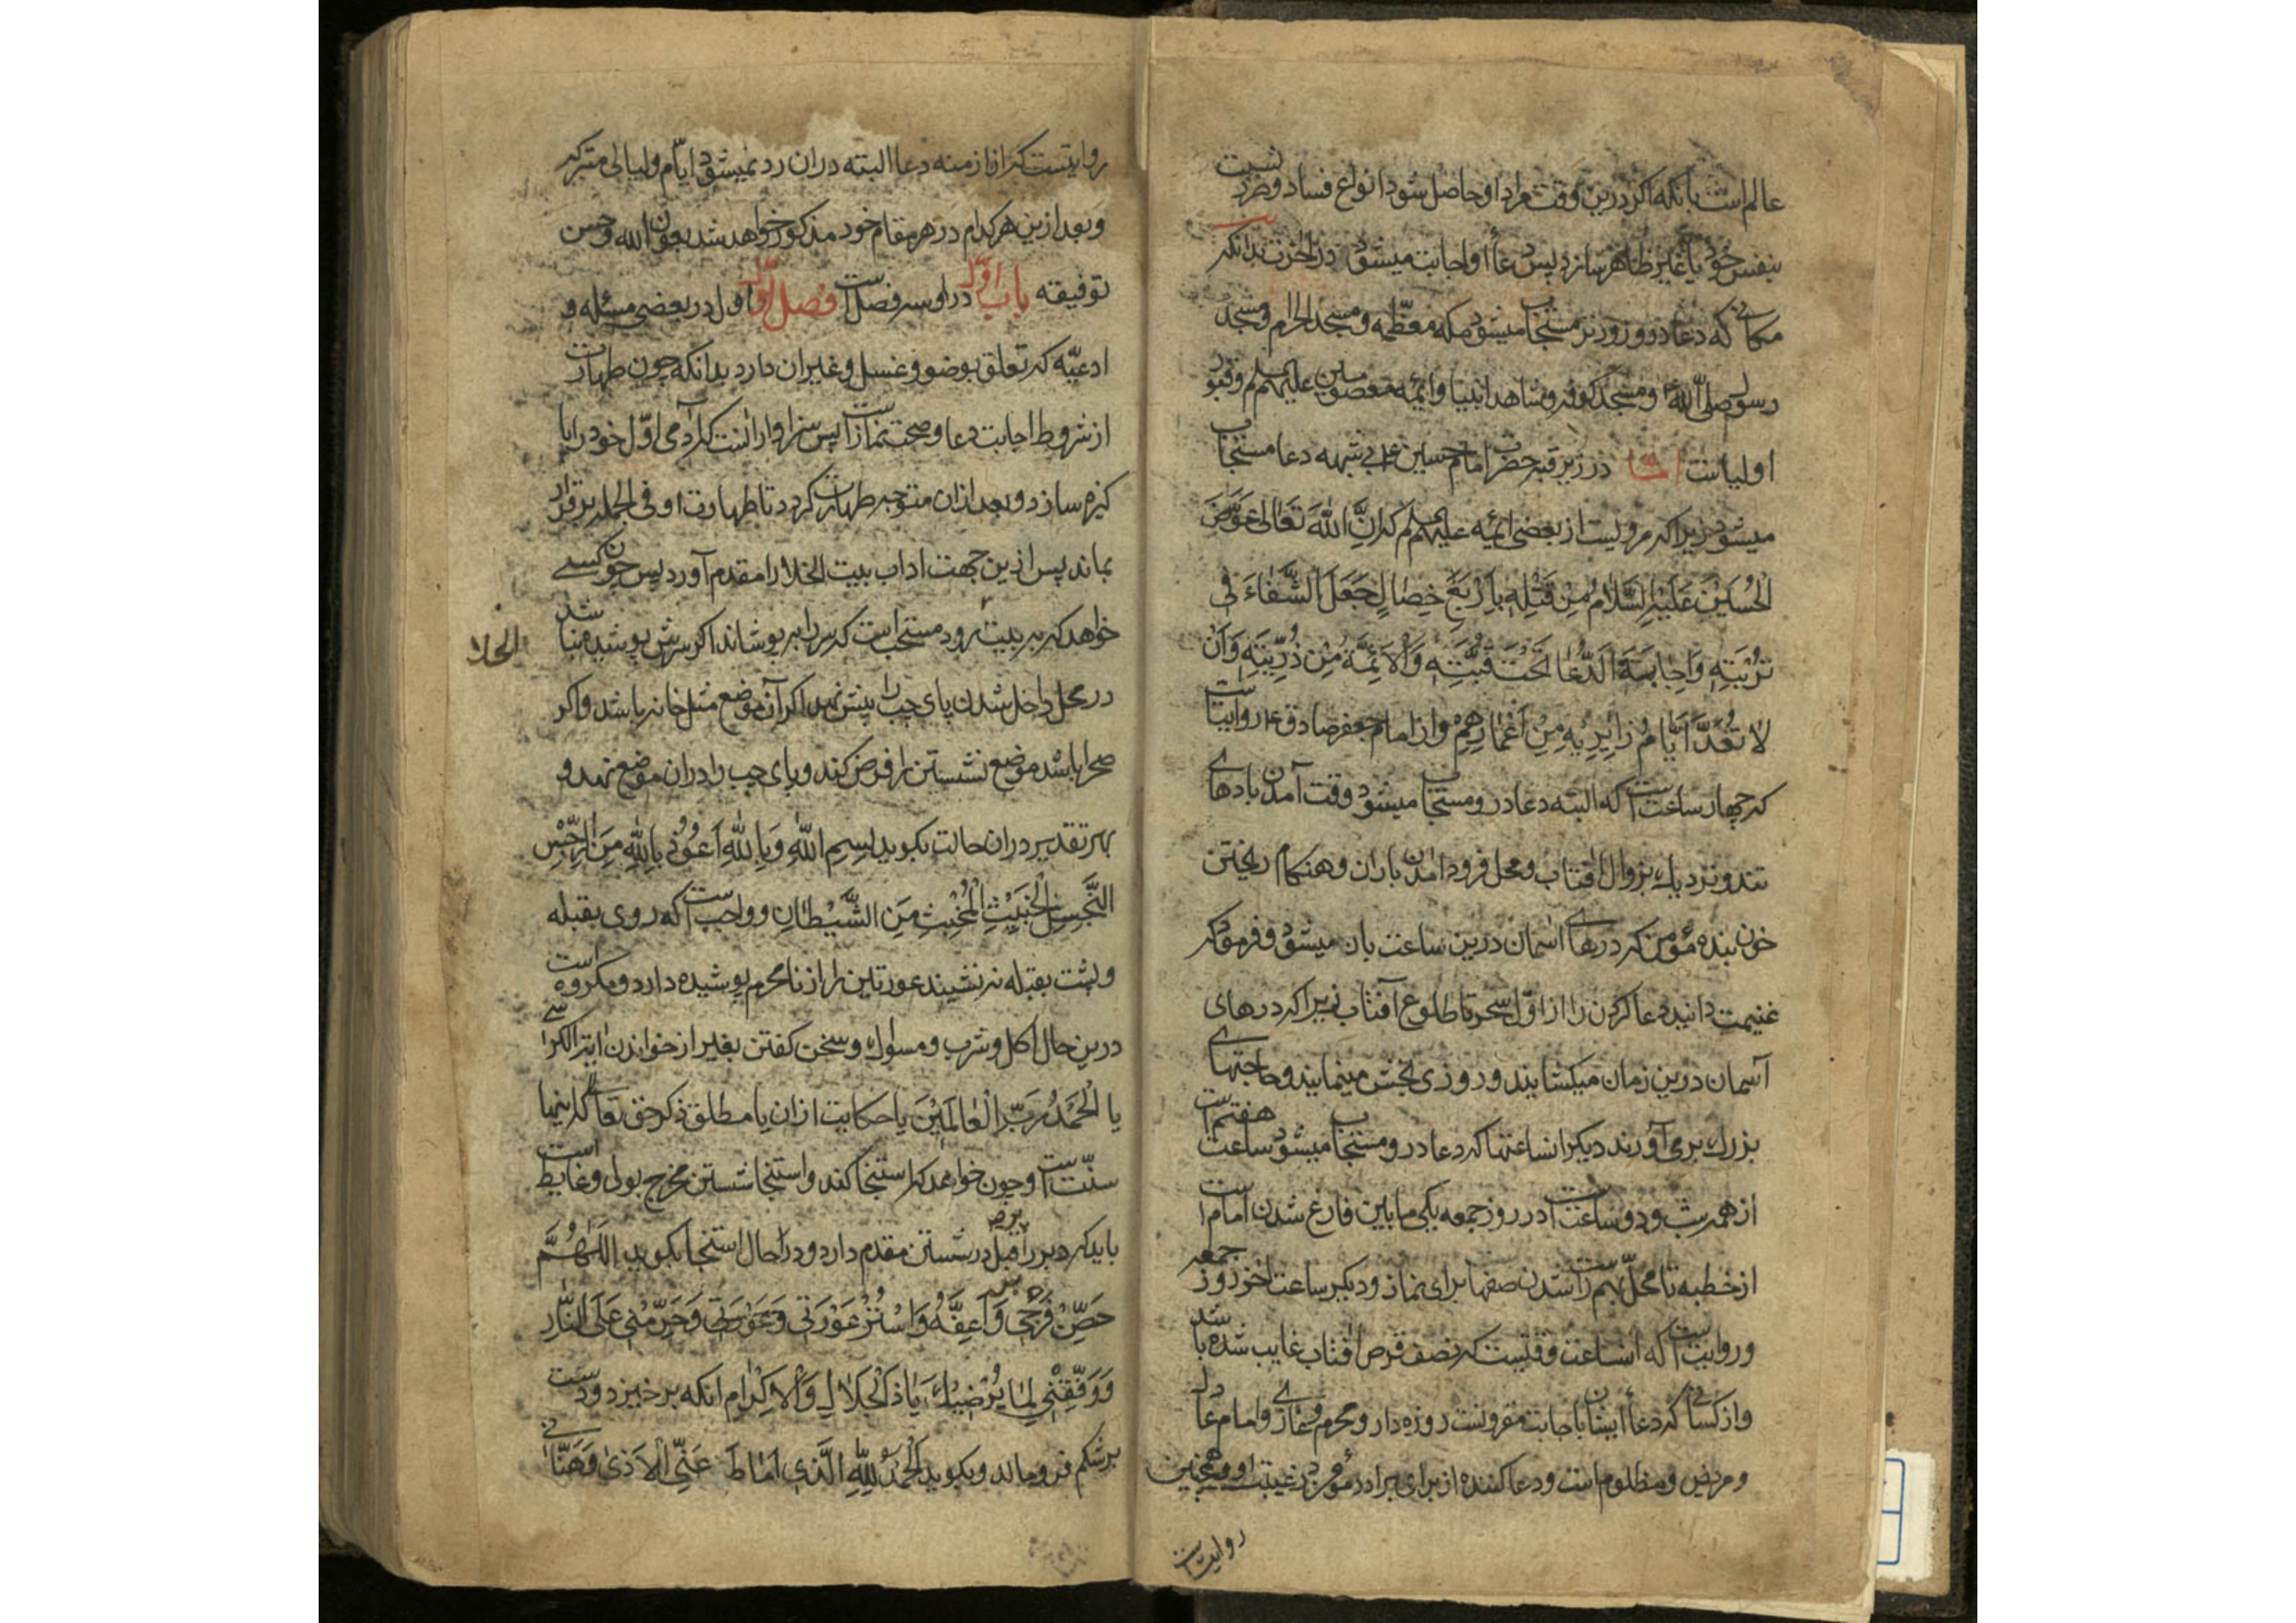 عالم است بانکه اکر درین وقت مراد او حاصل شود انواع فساد و ضرر نسبت
بنفس خود یا غیر ظاهر سازد پس دعاء او اجابت میشود در آخرت بدانکه
مکانی که دعا درو زودتر مستجاب میشود مکه معظّمه و مسجد الحرام و مسجد
رسول صلی الله و مسجد کوفه و مشاهد انبیا و ائمّه معصومین علیهم السلم و قبور
اولیاست اما در زیر قبه حضرت امام حسین ع بی شبهه دعا مستجاب
میشود زیرا که مرویست از بعضی ائمّه علیهم السلم که اِنَّ اللهَ تَعَالی عَوَّضَ
الْحُسَیْنَ عَلَیْهِ السَّلَامُ مِنْ قَتْلِهِ بِاَرْبَعِ خِصَالٍ جَعَلَ الشَّفَاءَ فِی
تُرْبَتِهِ وَاِجَابَةَ الدُّعَا تَحْتَ قُبَّتِهِ وَالْاَئِمَّةَ مِنْ ذُرِّیَّتِهِ وَاَنْ
لَا تُعَدَّ اَیَّامُ زَائِرِیْهِ مِنْ اَعْمَارِهِمْ و از امام جعفر صادق ع روایت است
که چهار ساعت است که البته دعا درو مستجاب میشود وقت آمدن بادهای
تند و نزدیک بزوال افتاب و محل فرود امدن باران و هنکام ریختن
خون بنده مؤمن که درهای اسمان درین ساعت باز میشود و فرمود که
غنیمت دانید دعا کردن را از اوّل سحر تا طلوع آفتاب زیرا که درهای
آسمان درین زمان میکشایند و روزی بخش مینمایند و حاجتهای
بزرک برمی آورند دیکر از ساعتها که دعا درو مستجاب میشود ساعت هفتم است
از هر شب و دو ساعت است در روز جمعه یکی مابین فارغ شدن امام است
از خطبه تا محلّ راست شدن صفها برای نماز و دیکر ساعت اخر روز جمعه
و روایت است که انساعت وقتیست که نصف قرص افتاب غایب شده باشد
و از کسانی که دعاء ایشان باجابت مقرونست روزه دار و محرم و غازی و امام عادل
و مریض و مظلوم است و دعا کننده از برای برادر مؤمن در غیبت او و همچنین
روایت است
روایتست که از ازمنه دعا البته دران رد نمیشود ایّام و لیالی متبرکه
و بعد ازین هر کدام در هر مقام خود مذکور خواهد شد بعون الله و حسن
توفیقه باب اوّل در او سه فصل است فصل اوّل اول در بعضی مسئله و
ادعیّه که تعلق بوضو و غسل و غیر ان دارد بدانکه چون طهارت
از شروط اجابت دعا و صحت نماز است پس سزاوار انست که آدمی اوّل خود را پا
کیزه سازد و بعد ازان متوجه طهارت کردد تا طهارت او فی الجمله برقرار
بماند پس ازین جهت اداب بیت الخلا را مقدم آورد پس چون کسی
خواهد که به بیت رود مستحب است که سر را بپوشاند اکر سرش پوشیده نباشد
الخلا
در محل داخل شدن پای چپ را پیش نهد اکر آن موضع مثل خانه باشد و اکر
صحرا باشد موضع نشستن را فرض کند و پای چپ را دران موضع نهد و
بهر تقدیر دران حالت بکوید بِسْمِ اللهِ وَبِاللهِ اَعُوْذُ بِاللهِ مِنَ الرِّجْسِ
النَّجِسِ الْخَبِیْثِ الْمُخْبِثِ مِنَ الشَّیْطَانِ و واجب است که روی بقبله
و پشت بقبله نه نشیند عورتین را از نامحرم پوشیده دارد و مکروه است
درین حال اکل و شرب و مسواک و سخن کفتن بغیر از خواندن ایة الکرسی
یا الْحَمْدُ رَبِّ الْعَالَمِیْنَ یا حکایت اذان یا مطلق ذکر حق تعالی که اینها
سنّت است و چون خواهد که استنجا کند و استنجا شستن مخرج بول و غایط است
باید که دبر را بر قبل در شستن مقدم دارد و در حال استنجا بکوید اَللّٰهُمَّ
حَصِّنْ فَرْجِی وَاَعِفَّهُ وَاسْتُرْ عَوْرَتِی وَحَرِّمْنِی عَلَی النَّارِ
وَوَفِّقْنِی لِمَا یُرْضِیْکَ یَا ذَالْجَلَالِ وَالْاِکْرَام انکه برخیزد و دست
بر شکم فرومالد و بکوید الْحَمْدُ لِلّٰهِ الَّذِی اَمَاطَ عَنِّی الْاَذٰی وَهَنَّانِی